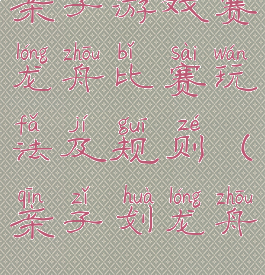 亲子游戏赛
lóng zhōu bǐ sài wán
龙舟比赛玩
fǎ jí guī zé
法及规则（
qīn zǐ huá lóng zhōu
亲子划龙舟